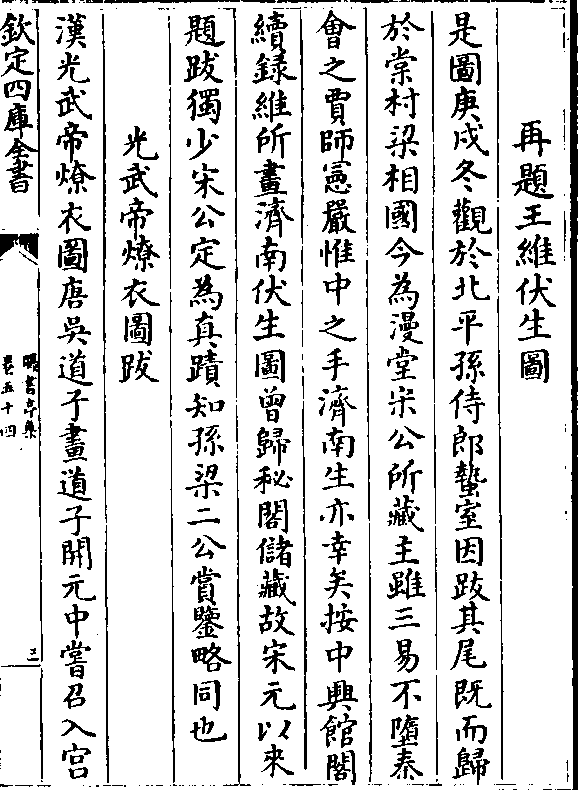 再題王維伏生圖
是圖庚戌冬觀於北平孫侍郎蟄室因跋其尾既而歸
於棠村梁相國今為漫堂宋公所藏主雖三易不墮秦
會之賈師憲嚴惟中之手濟南生亦幸矣按中興館閣
續錄維所畫濟南伏生圖曾歸秘閣儲藏故宋元以來
題跋獨少宋公定為真蹟知孫梁二公賞鑒略同也
光武帝燎衣圖跋
漢光武帝燎衣圖唐吳道子畫道子開元中嘗召入宫
欽定四庫全書
曝書亭集
卷五十四
三